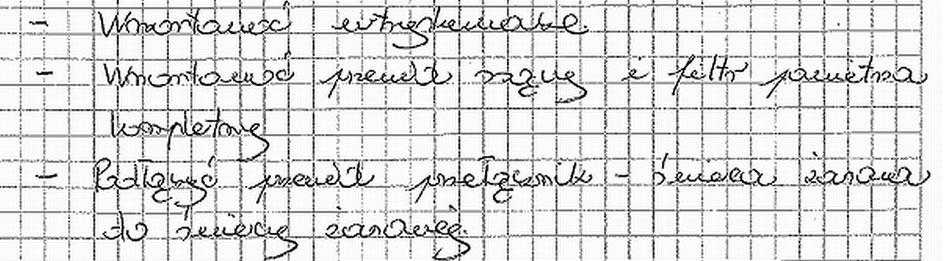 - Wmontować wtryskiwacze.
- Wmontować przewód ssący i filtr powietrza
kompletny
- Podłączyć przewód przełącznik - świeca żarowa
do świecy żarowej.